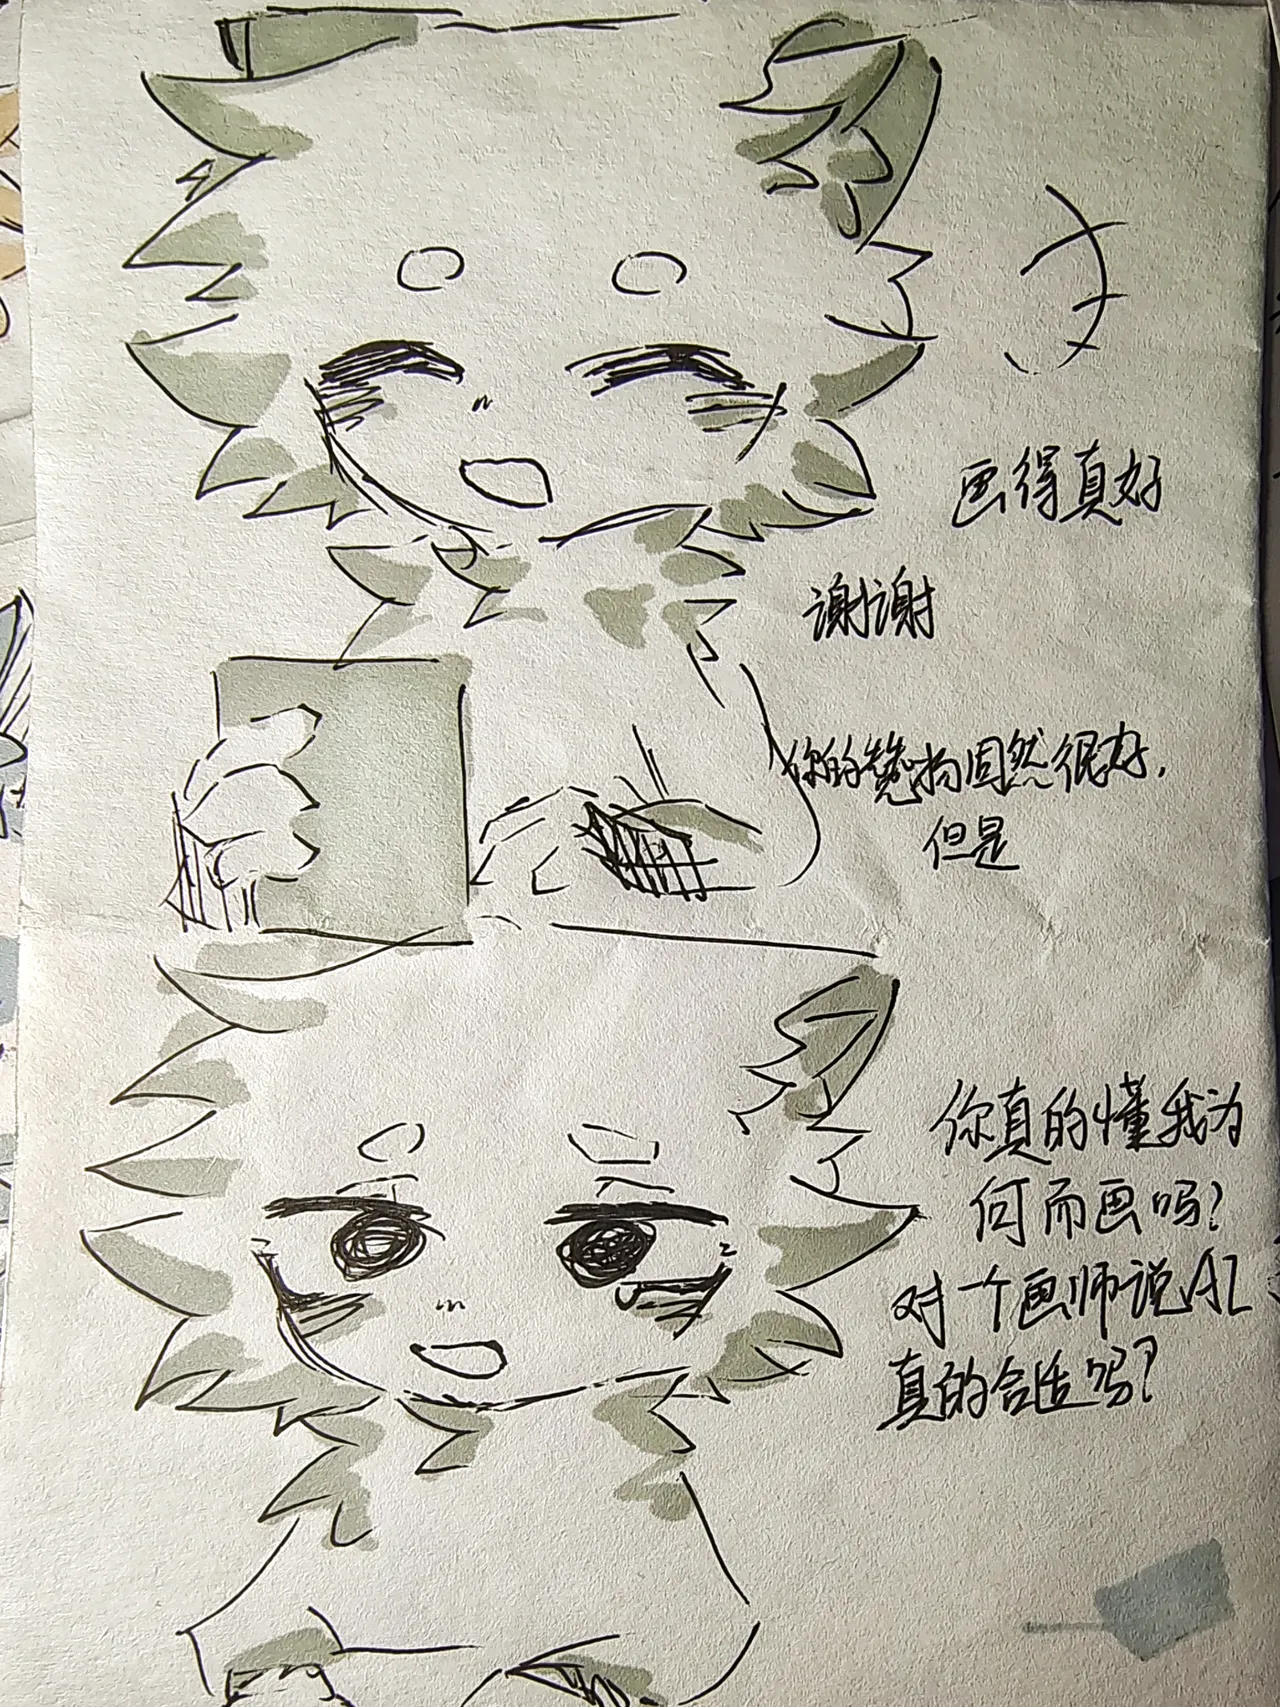 画得真好
谢谢
你的赞扬固然很好，
但是
你真的懂我为
何而画吗？
对一个画师说AI
真的合适吗？